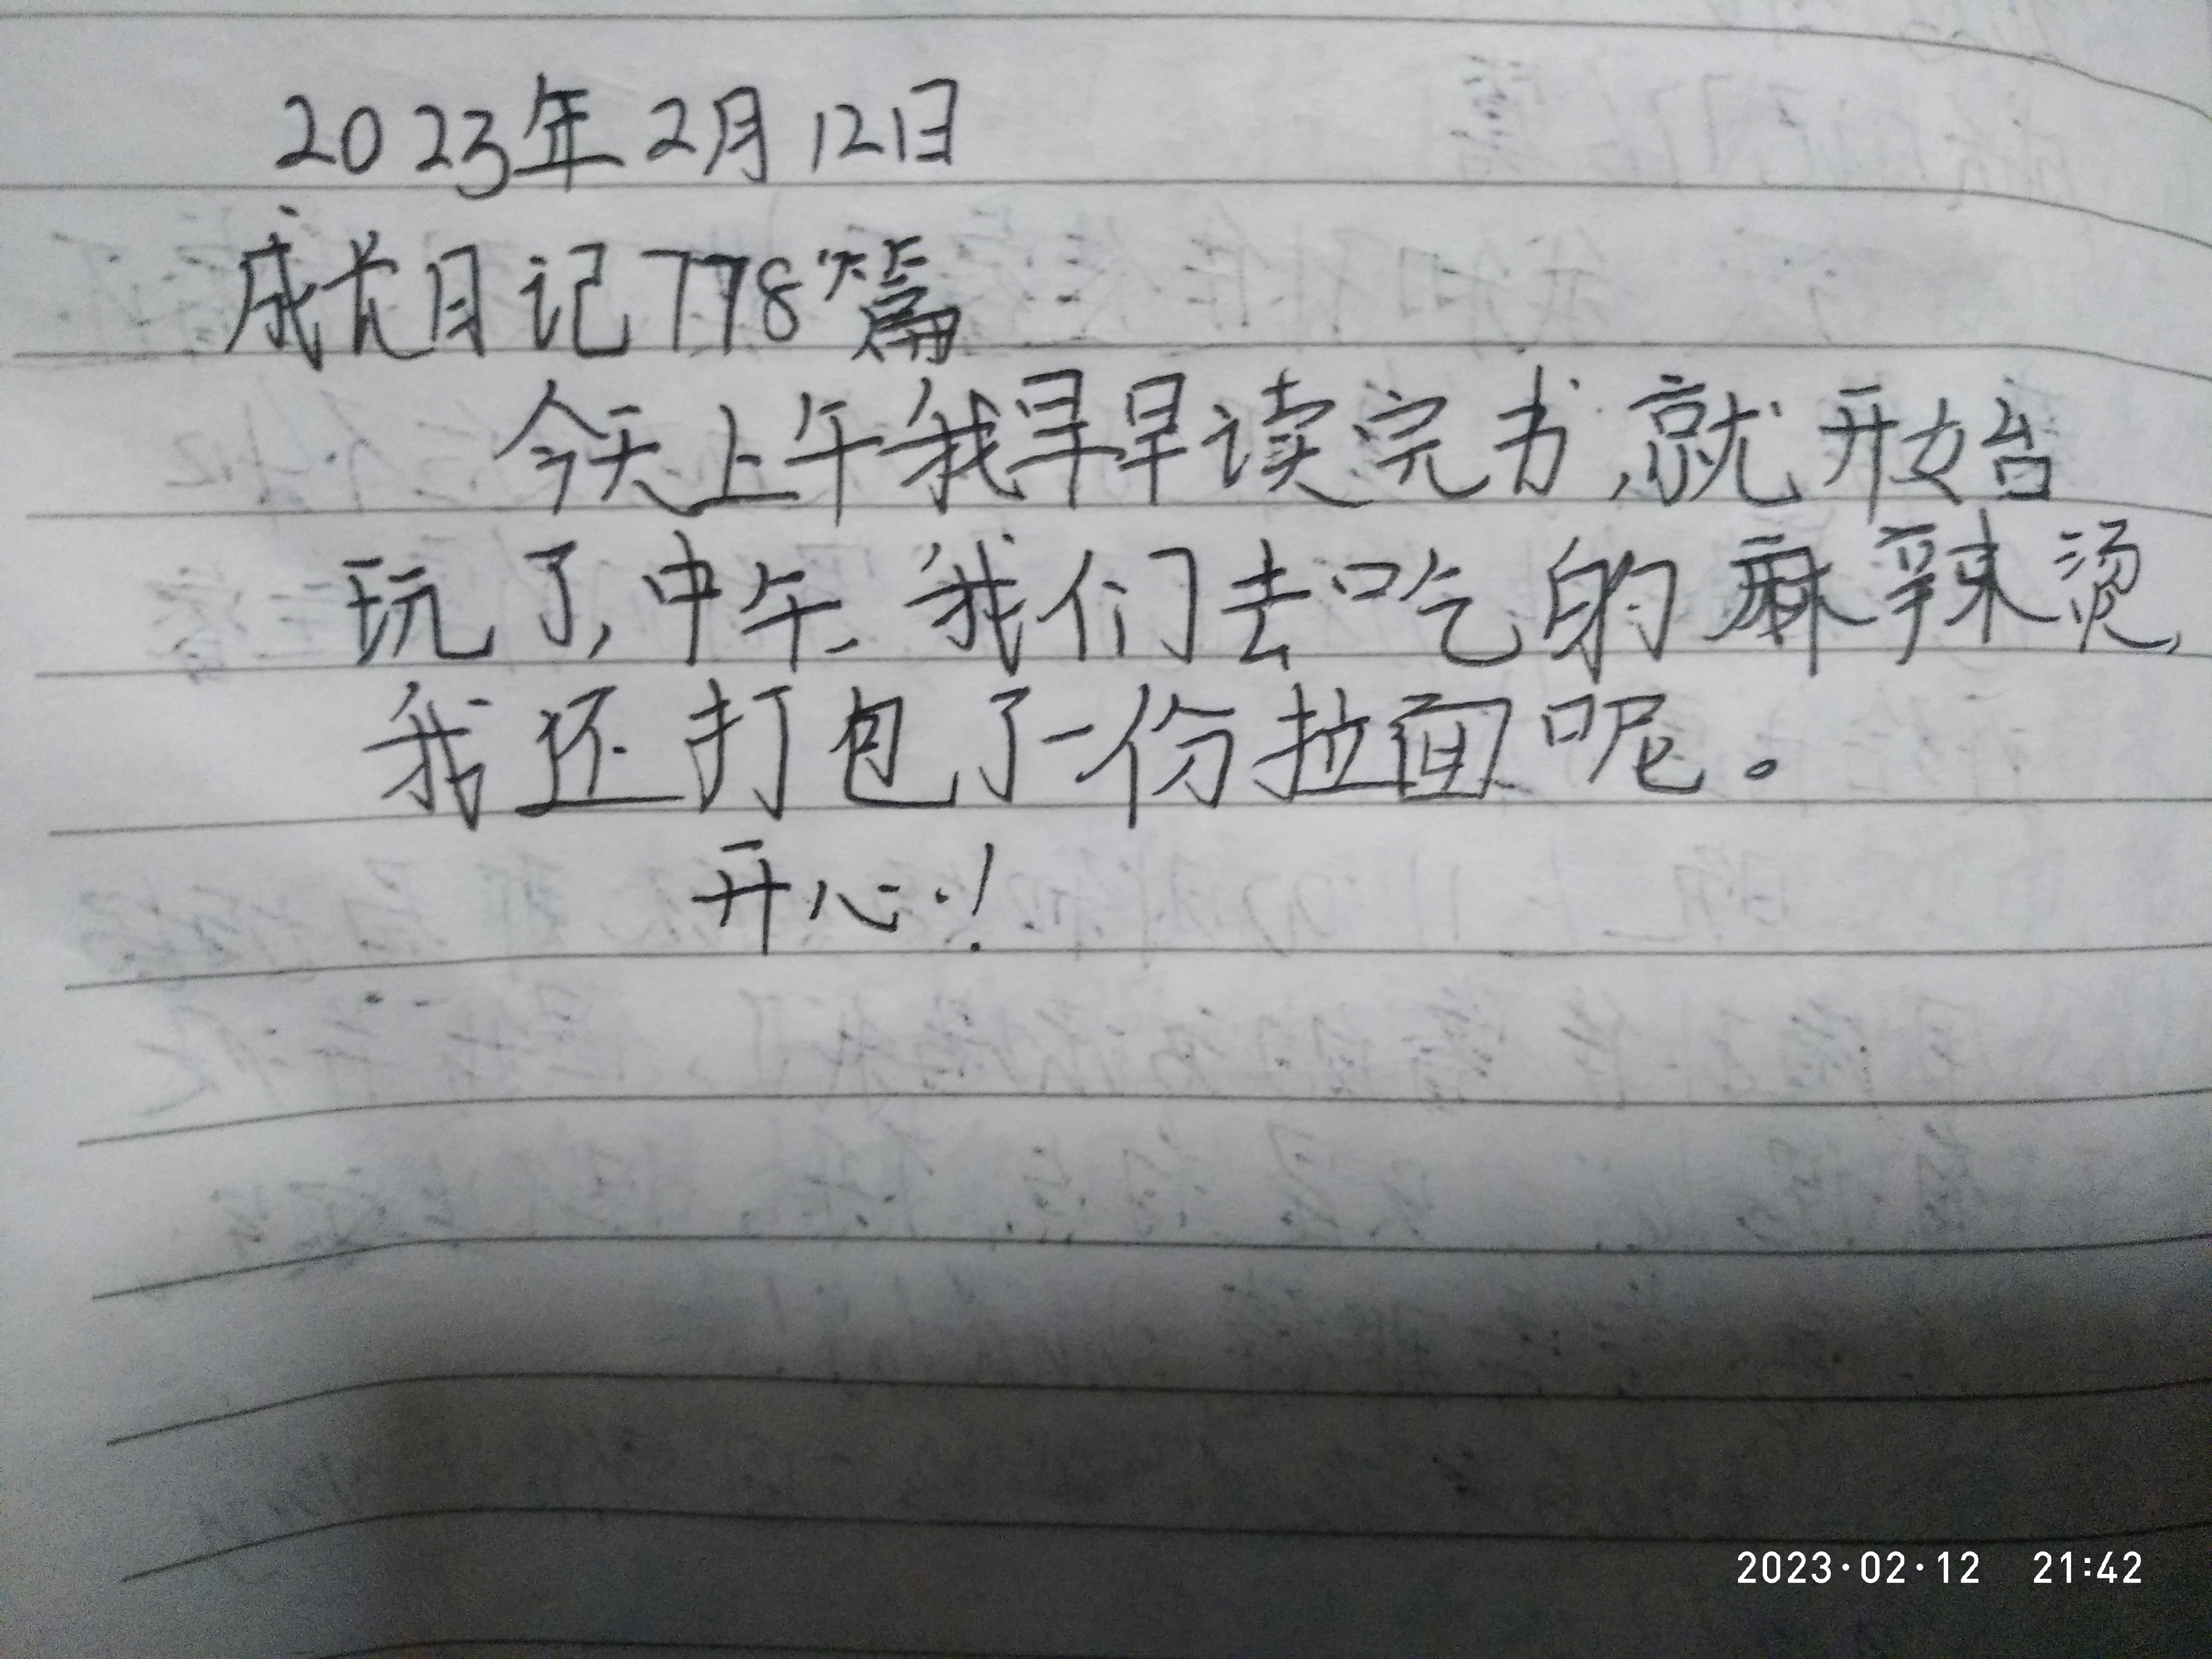 2023年2月12日
成长日记778篇
今天上午我早早读完书,就开始
玩了,中午、我们去吃的麻辣烫,
我还打包了一份拉面呢。
开心!
2023·02·12 21:42